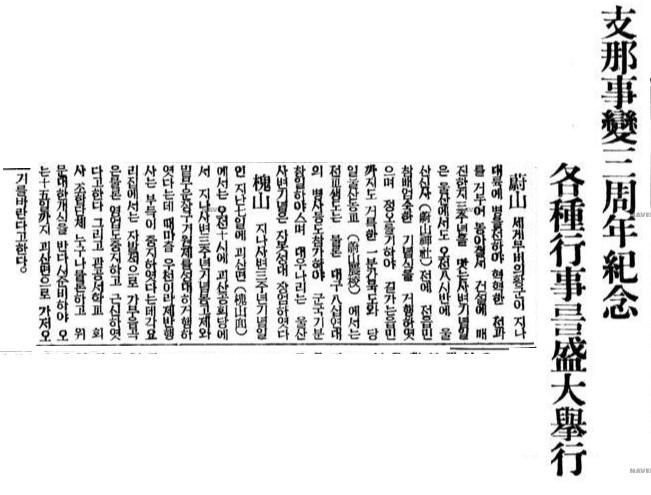 支那事變三周年紀念
各種行事를盛大擧行
蔚山 세게무비의황군이 지나
대륙에 병을진하야 혁혁한 전과
를 거두어 동아질서 건설에 매
진한지 三주년을 맞는사변기념일
은 울산에서도 오전八시반에 울
산신사(蔚山神社)전에 전읍민
참배엄숙한 기념식을 거행하엿
으며 정오를기하야 길가는읍민
까지도 거룩한 一분간묵도와 당
일울산농교(蔚山農校)에서는
전교생도는 물론 대구八십연대
의 병사등도참가해야 군국기분
사변기념은 자못성대 장엄하엿다
槐山 지나사변三주년기념일
인 지난七일에 괴산面(槐山面)
에서는 오전十시에 괴산공회당에
서 지나사변三주년기념품고제와
밑무운장구기원제를성대히거행하
엿다는데 때마츰 우천이라제반행
사는 부득이 중지하엿다는데각요
리집에서는 자발적으로 가무음곡
은물론 영업도중지하고 근신하엿
다고한다 그리고 관공서학교 회
사 조합단체 누구나를물론하고 위
는十五일까지 괴산면으로 가저오
기를바란다고한다。
NAVER